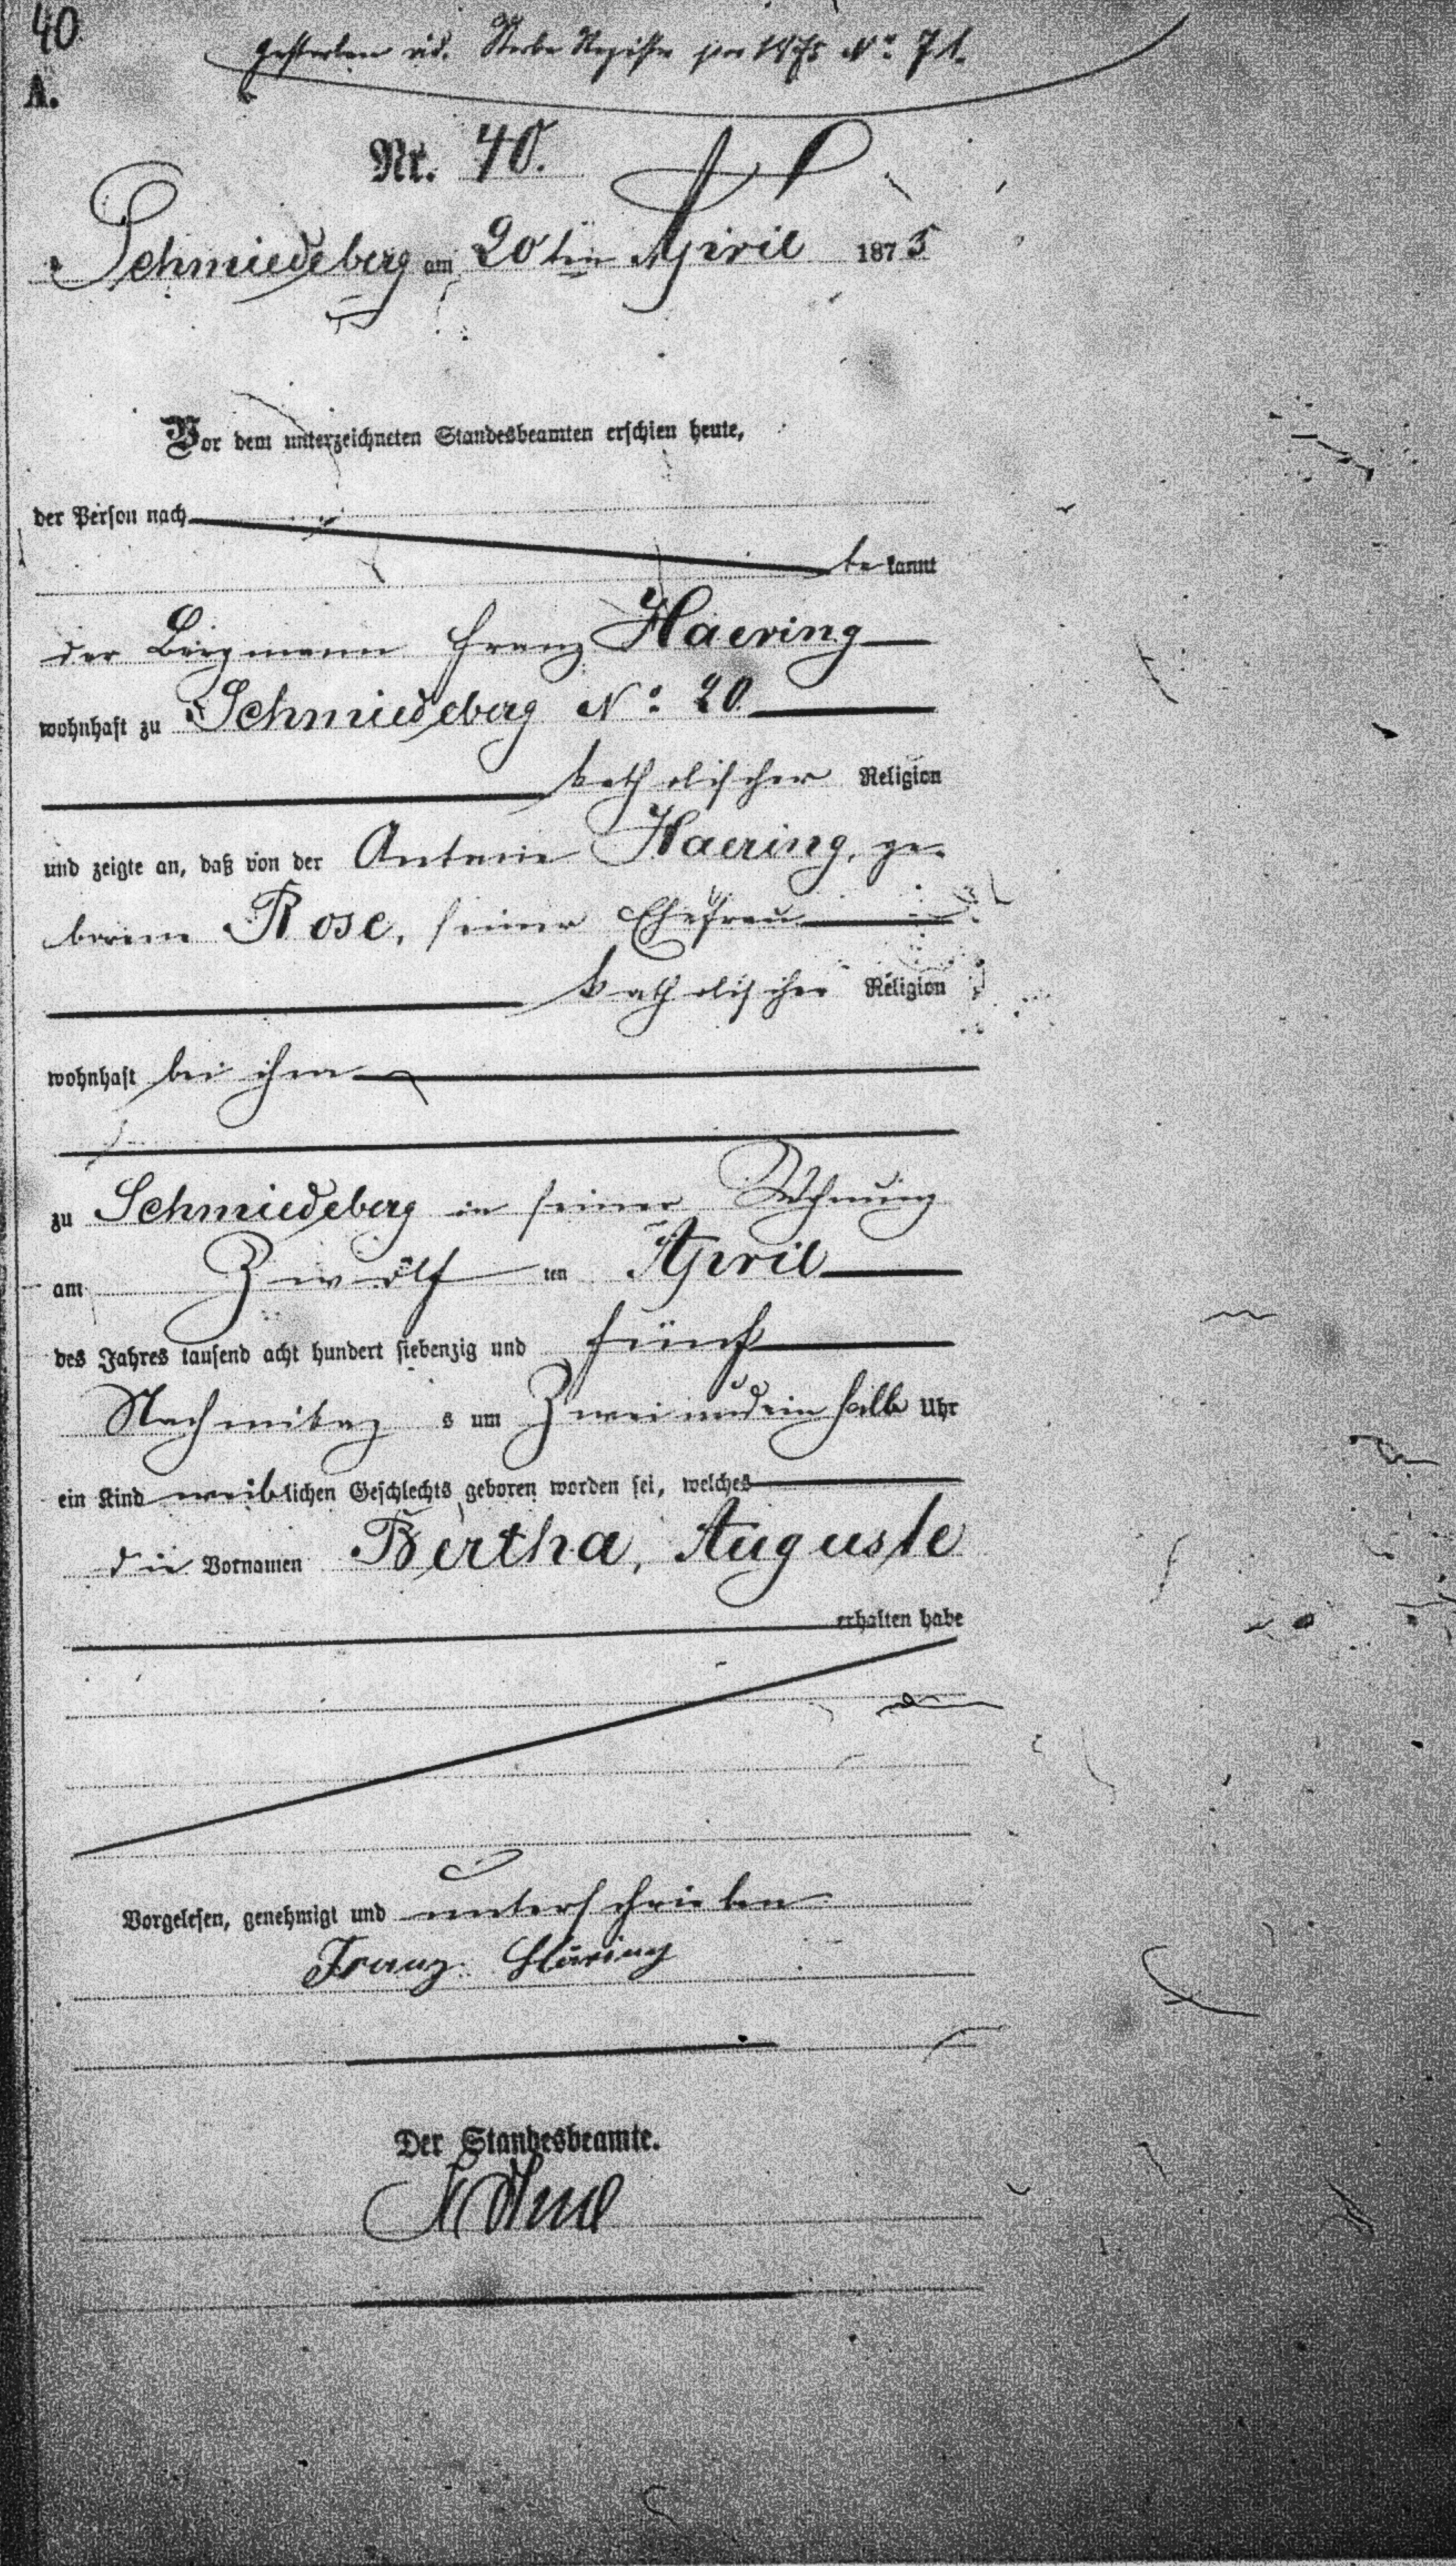 40.
gestorben vid. Sterbe Register pro 1875 No: 71.
A.
Nr. 40.
Schmiedeberg am 20ten April 1875
Vor dem unterzeichneten Standesbeamten erschien heute,
der Person nach
be kannt
der Bergmann Franz Haering
wohnhaft zu Schmiedeberg No: 20
katholischer Religion
und zeigte an, daß von der Antonie Haering, ge-
borene Rose, seiner Ehefrau
katholischer Religion
wohnhaft bei ihm
zu Schmiedeberg in seiner Wohnung
am Zwölf ten April
des Jahres tausend acht hundert siebenzig und fünf
Nachmittag s um Zwei und ein halb Uhr
ein Kind weiblichen Geschlechts geboren worden sei, welches
die Vornamen Bertha, Auguste
erhalten habe
Vorgelesen, genehmigt und unterschrieben
Franz Häring
Der Standesbeamte.